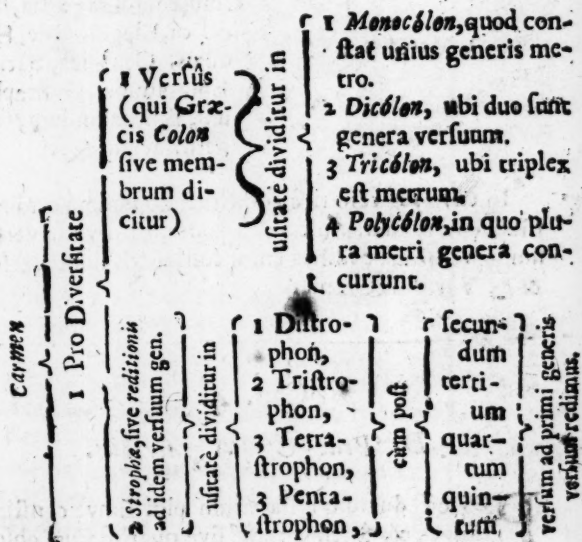 Carmen
1 Pro Diversitate
1 Versûs
(qui Græ-
cis Colon
ſive mem-
brum di-
citur)
uſitatè dividitur in
1 Monocôlon, quod con-
ſtat unius generis me-
tro.
2 Dicôlon, ubi duo ſunt
genera verſuum.
3 Tricôlon, ubi triplex
eſt metrum.
4 Polycôlon, in quo plu-
ra metri genera con-
currunt.
2 Strophæ, ſive reditionis
ad idem verſuum gen.
uſitatè dividitur in
1 Diſtro-
phon,
2 Triſtro-
phon,
3 Tetra-
ſtrophon,
3 Penta-
ſtrophon
cùm poſt
ſecun-
dum
terti-
um
quar-
tum
quin-
tum
verſum ad primi generis
verſum redimus.